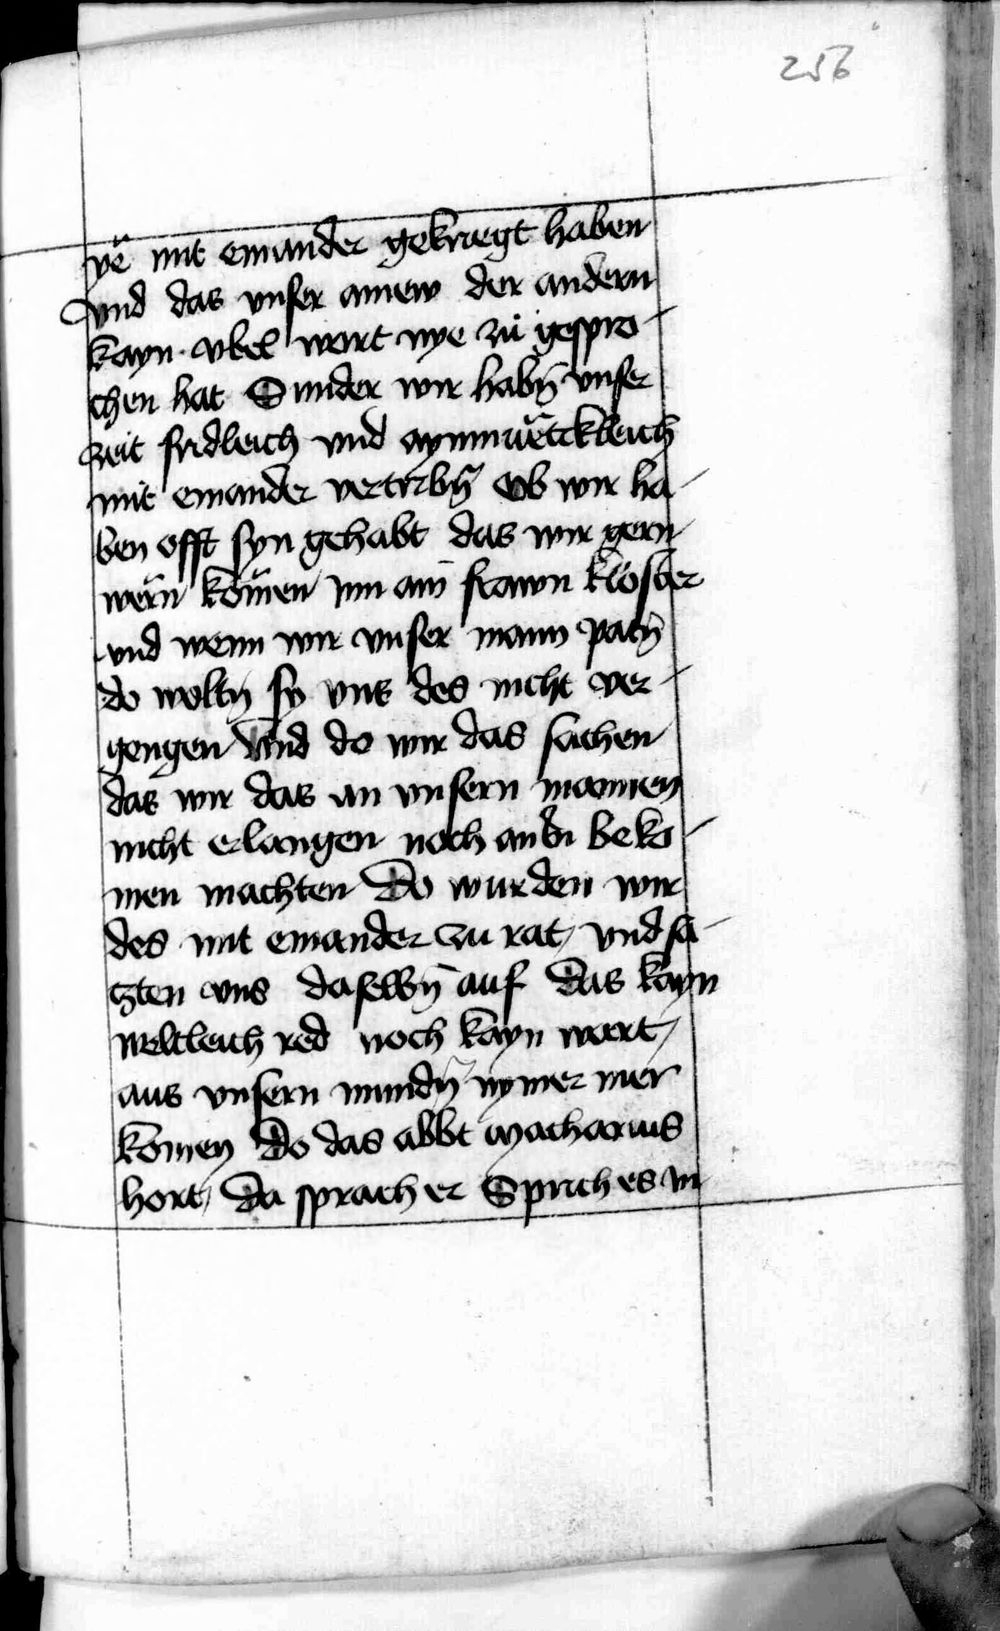 256
yë mit einander gekriegt haben
vnd das vnser ainew der andern
kayn vbel wort nye zu gespro-
chen hat Sunder wir habn̄ vnser
zeit fridleich vnd aynmuëtckleich
mit einander vertribn̄ Ob wir ha-
ben offt syn gehabt das wir gern
wërn kömen inn ain frawn kloster
vnd wenn wir vnser mann patn̄
do woltn̄ sy vns des nicht ver-
gengen Vnd do wir das sachen
das wir das an vnsern mannen
nicht erlangen noch beko-
men machten Do wurden wir
des mit einander zu rat / vnd sa-
czten vns daselbn̄ auf Das kayn
weltleich red noch kayn wort /
aus vnsern mundn̄ nymer mer
komen Do das abbt Macharius
hort / Da sprach er Sprich es in